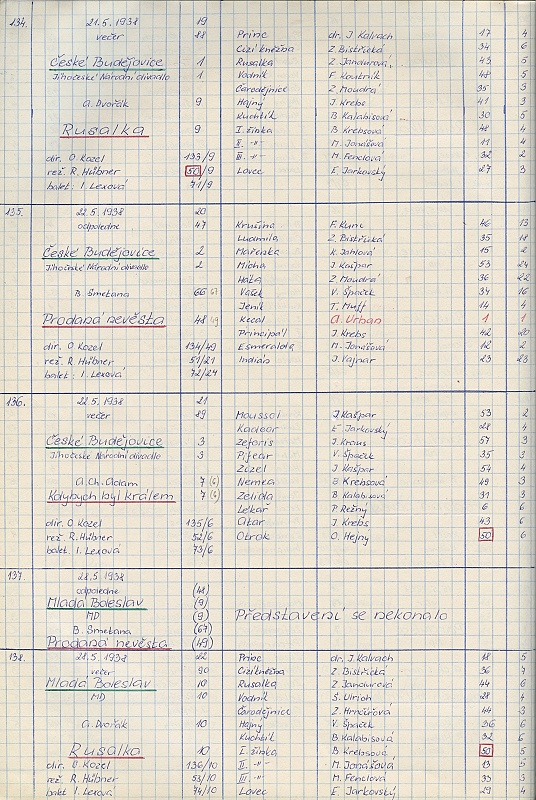 134. 21.5.1938 19 Princ dr. J. Kalvach 17 4
večer 88 Cizí kněžna Z. Bistřická 34 6
České Budějovice 1 Rusalka Z. Jandurová 43 5
Jihočeské Národní divadlo 1 Vodník F. Koutník 48 5
Čarodějnice Z. Moudrá 35 3
A. Dvořák 9 Hajný J. Krebs 41 3
Kuchtík B. Kalabisová 30 5
Rusalka 9 I. žínka B. Krebsová 48 4
II. -"- M. Jonášová 11 4
dir. O Kozel 133/9 III. -"- M. Fenclová 32 2
rež. R. Hübner 50/9 Lovec E. Jarkovský 27 3
balet: I. Lexová 71/9
135. 22.5.1938 20
odpoledne 47 Krušina F. Kunc 46 13
Ludmila Z. Bistřická 35 18
České Budějovice 2 Mařenka K. Jahlová 15 2
Jihočeské Národní divadlo 2 Mícha J. Kašpar 53 24
Háta Z. Moudrá 36 22
B. Smetana 66 Vašek V. Špaček 34 16
Jeník T. Muff 14 4
Prodaná nevěsta 48 Kecal A. Urban 1 1
Principál J. Krebs 42 20
dir. O Kozel 134/49 Esmeralda M. Jonášová 12 2
rež. R. Hübner 51/21 Indián J. Vajnar 23 23
balet: I. Lexová 72/24
136. 22.5.1938 21
večer 89 Moussol J. Kašpar 53 2
Kadoor E. Jarkovský 28 4
České Budějovice 3 Zeforis J. Kraus 57 3
Jihočeské Národní divadlo 3 Pifear V. Špaček 35 3
Zizel J. Kašpar 54 4
A. Ch. Adam 7 (6) Nemea B. Krebsová 49 3
Kdybych byl králem 7 (6) Zelida B. Kalabisová 31 3
Lékař P. Režný 6 6
dir. O Kozel 135/6 Atar J. Krebs 43 6
rež. R. Hübner 52/6 Otrok O. Hejný 50 6
balet. I. Lexová 73/6
137. 28.5.1938
odpoledne (48)
Mladá Boleslav (9)
MD (9) Představení se nekonalo
B. Smetana (67)
Prodaná nevěsta (49)
138. 28.5.1938 22 Princ dr. J. Kalvach 18 5
večer 90 Cizí kněžna Z. Bistřická 36 7
Mladá Boleslav 10 Rusalka Z. Jandurová 44 6
MD 10 Vodník S. Ulrich 28 4
Čarodějnice Z. Hrnčířová 44 3
A. Dvořák 10 Hajný V. Špaček 36 6
Kuchtík B. Kalabisová 32 6
Rusalka 10 I. žínka B. Krebsová 50 5
dir. O Kozel 136/10 II. -"- M. Jonášová 13 5
rež. R. Hübner 53/10 III. -"- M. Fenclová 33 3
balet I. Lexová 74/10 Lovec E. Jarkovský 29 4